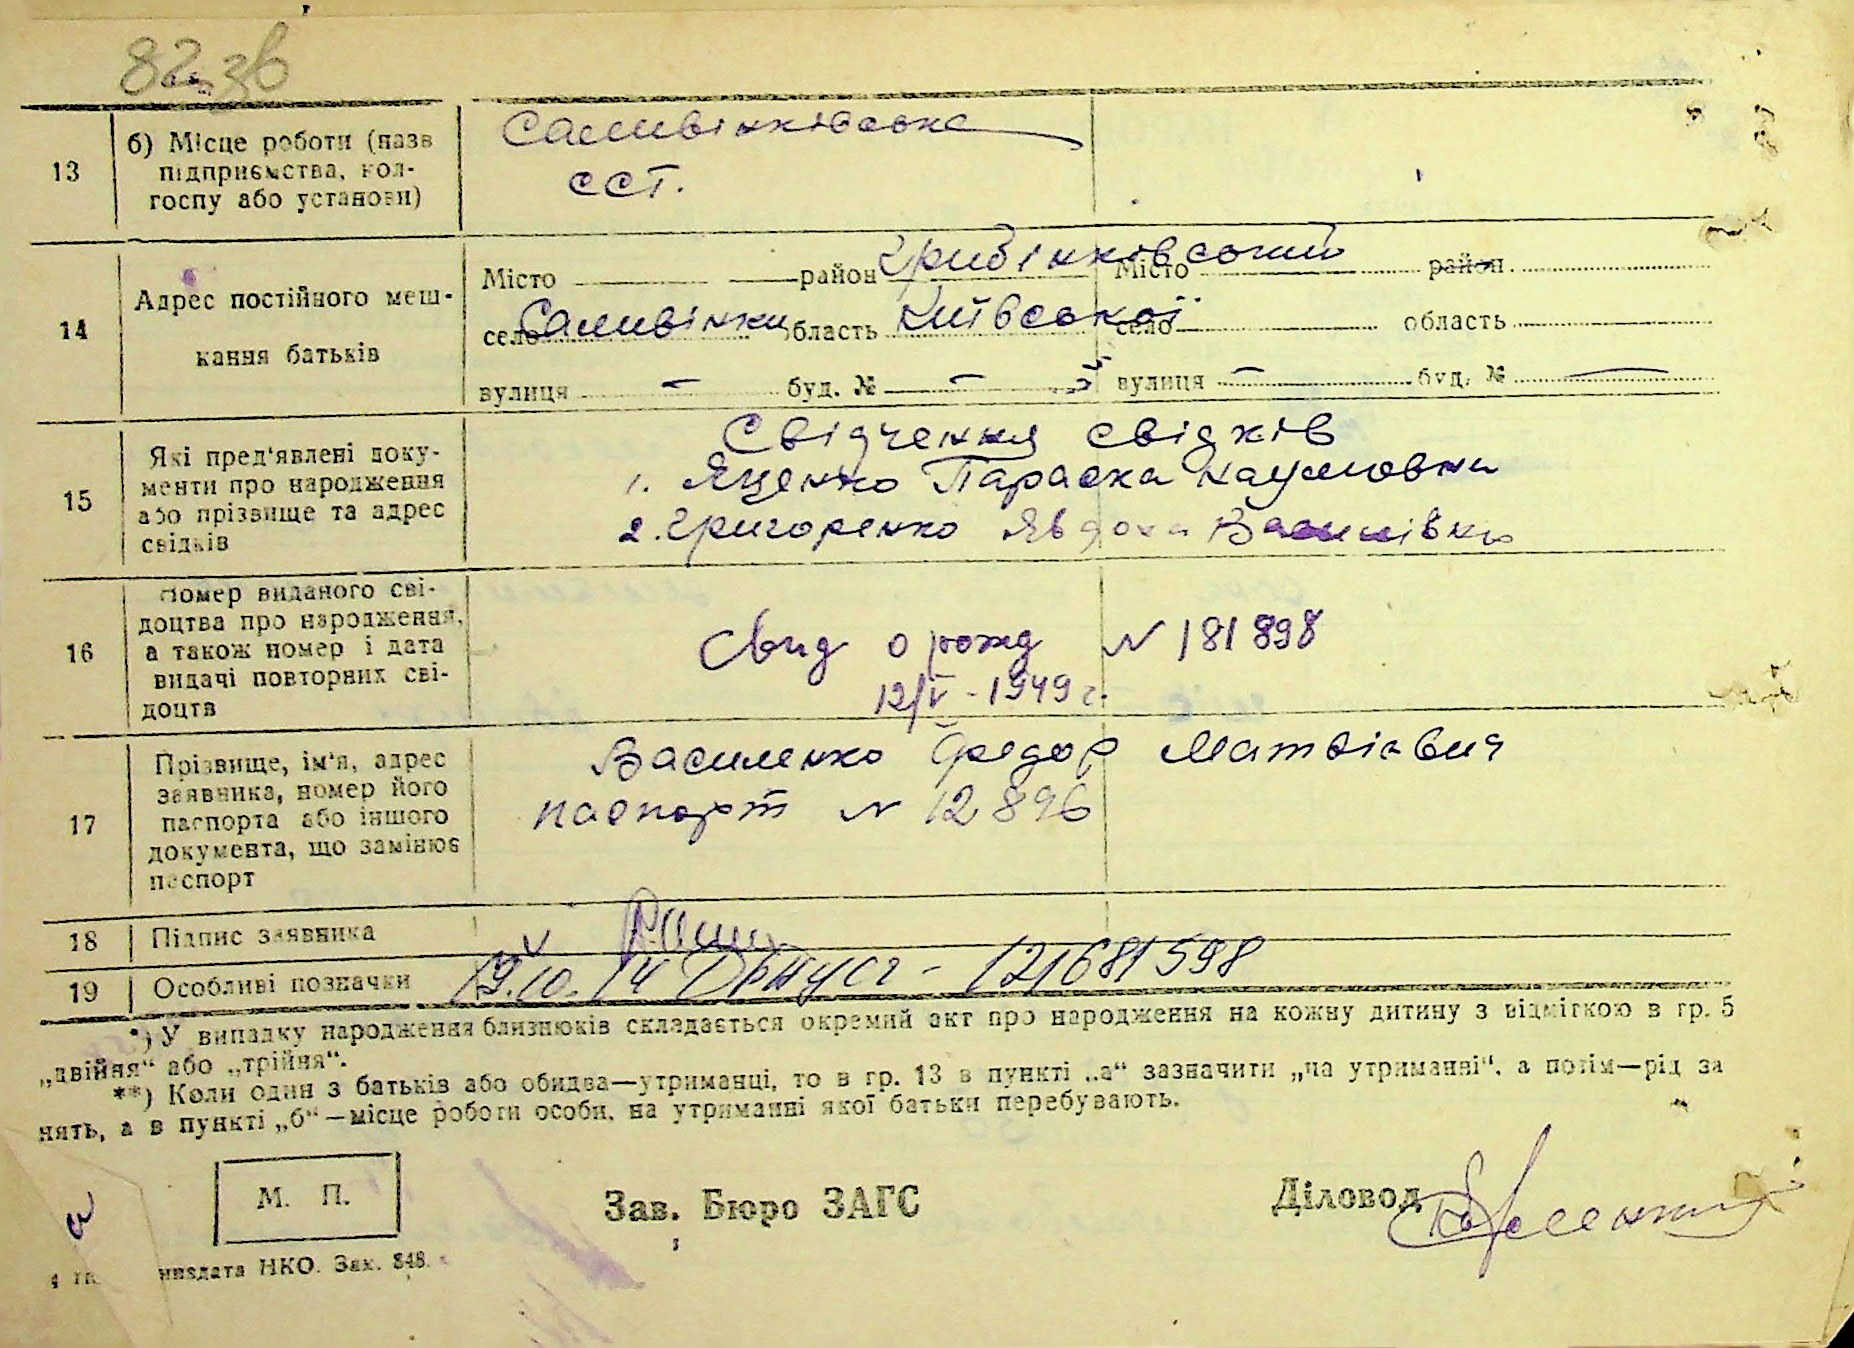 82 зв
13
б) Місце роботи (назв
підприємства, кол-
госпу або установи)
Саливінківська
ССТ.
14
Адрес постійного меш-
кання батьків
Місто район Гребінківський Місто район
село Саливінки область Київської село область
вулиця – буд. № – вулиця – буд. № –
15
Які пред'явлені доку-
менти про народження
або прізвище та адрес
свідків
Свідчення свідків
1. Яценко Параска Наумовна
2. Григоренко Явдоха Василівна
16
Номер виданого сві-
доцтва про народження,
а також номер і дата
видачі повторних сві-
доцтв
Свид о рожд N 181898
12/V - 1949 г.
17
Прізвище, ім'я, адрес
заявника, номер його
паспорта або іншого
документа, що замінює
паспорт
Василенко Федор Матвієвич
паспорт N 12896
18
Підпис заявника
19
Особливі позначки
19.10.14 - 121681598
*) У випадку народження близнюків складається окремий акт про народження на кожну дитину з відміткою в гр. 5
„двійня“ або „трійня“.
**) Коли один з батьків або обидва—утриманці, то в гр. 13 в пункті „а“ зазначити „на утриманні“, а потім—рід за
нять, а в пункті „б“—місце роботи особи, на утриманні якої батьки перебувають.
М. П.
Зав. Бюро ЗАГС
Діловод
НКО. Зак. 848.